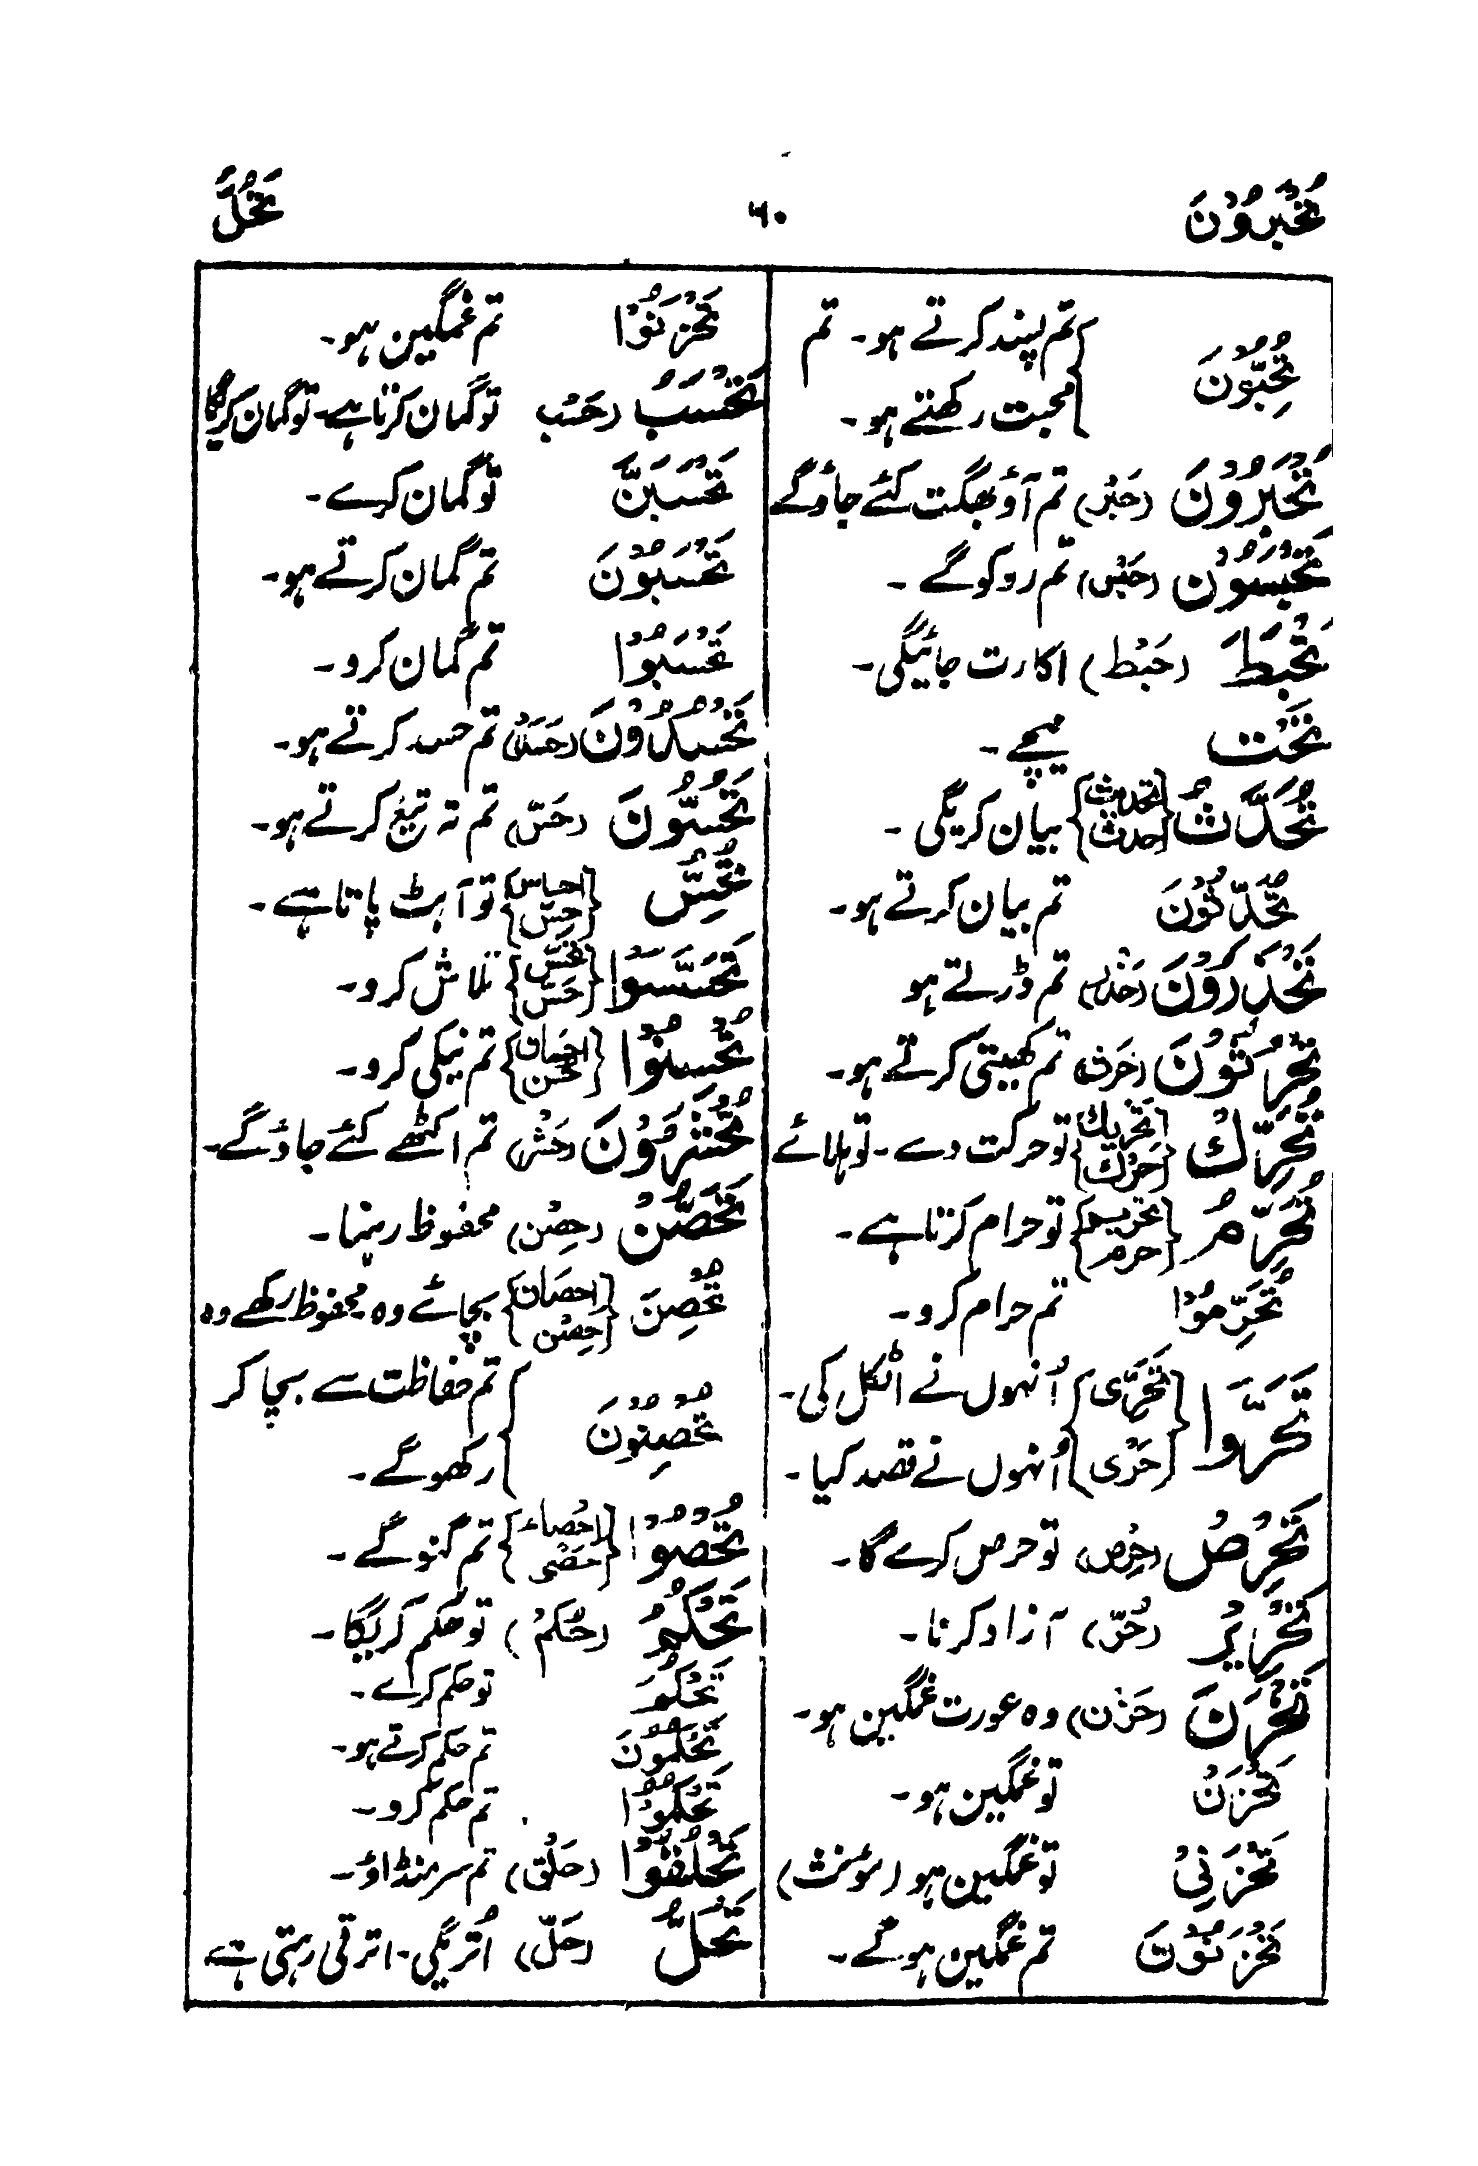 تُحْبَرُوْنَ ۶۰ تَحُلُّ
تُحِبُّوْنَ تم پسند کرتے ہو۔ تم
محبت رکھتے ہو۔
تُحْبَرُوْنَ (حَبْر) تم آؤ بھگت کئے جاؤگے
تَحْبِسُوْنَ (حَبْس) تم روکو گے ۔
تَحْبَطَ (حَبْط) اکارت جائیگی۔
تَحْتَ نیچے ۔
تُحَدِّثُ (تحدیث، حدث) بیان کریگی ۔
تُحَدِّثُوْنَ تم بیان کرتے ہو۔
تَحْذَرُوْنَ (حَذَر) تم ڈرتے ہو
تَحْرُثُوْنَ (حَرْث) تم کھیتی کرتے ہو۔
تُحَرِّكْ (تَحْرِیْك، حَرْك) تو حرکت دے ۔ تو ہلائے
تُحَرِّمُ (تحریم، حرم) تو حرام کرتا ہے۔
تُحَرِّمُوْا تم حرام کرو۔
تَحَرَّوْا (تَحَرِّی) اُنہوں نے اٹکل کی۔
(حَرْی) اُنہوں نے قصد کیا ۔
تَحْرِصْ (حِرْص) تو حرص کرے گا۔
تَحْرِیْرُ (حُرّ) آزاد کرنا۔
تَحْزَنَ (حَزَن) وہ عورت غمگین ہو۔
تَحْزَنْ تو غمگین ہو۔
تَحْزَنِیْ تو غمگین ہو (مؤنث)
تَحْزَنُوْنَ تم غمگین ہو گے۔
تَحْزَنُوْا تم غمگین ہو۔
تَحْسَبُ (حَسْب) تو گمان کرتا ہے۔ تو گمان کریگا
تَحْسَبَنَّ تو گمان کرے۔
تَحْسَبُوْنَ تم گمان کرتے ہو۔
تَحْسَبُوْا تم گمان کرو۔
تَحْسُدُوْنَ (حَسَد) تم حسد کرتے ہو۔
تَحُسُّوْنَ (حَسّ) تم تہ تیغ کرتے ہو۔
تُحِسُّ (احساس، حِسّ) تو آہٹ پاتا ہے۔
تَحَسَّسُوْا (تحسّس، حَسّ) تلاش کرو۔
تُحْسِنُوْا (احسان، حُسْن) تم نیکی کرو۔
تُحْشَرُوْنَ (حَشْر) تم اکٹھے کئے جاؤ گے۔
تَحَصُّنْ (حِصْن) محفوظ رہنا۔
تُحْصِنَ (احصان، حِصْن) بچائے وہ۔ محفوظ رکھے وہ
تُحْصِنُوْنَ تم حفاظت سے بچا کر
رکھو گے۔
تُحْصُوْا (اِحْصَاء، حَصْی) تم گنو گے ۔
تَحْكُمُ (حُكْمْ) تو حکم کریگا۔
تَحْكُمَ تو حکم کرے۔
تَحْكُمُوْنَ تم حکم کرتے ہو۔
تَحْكُمُوْا تم حکم کرو۔
تَحْلِقُوْا (حَلْق) تم سر منڈاؤ۔
تَحُلُّ (حَلّ) اُتریگی۔ اترتی رہتی ہے